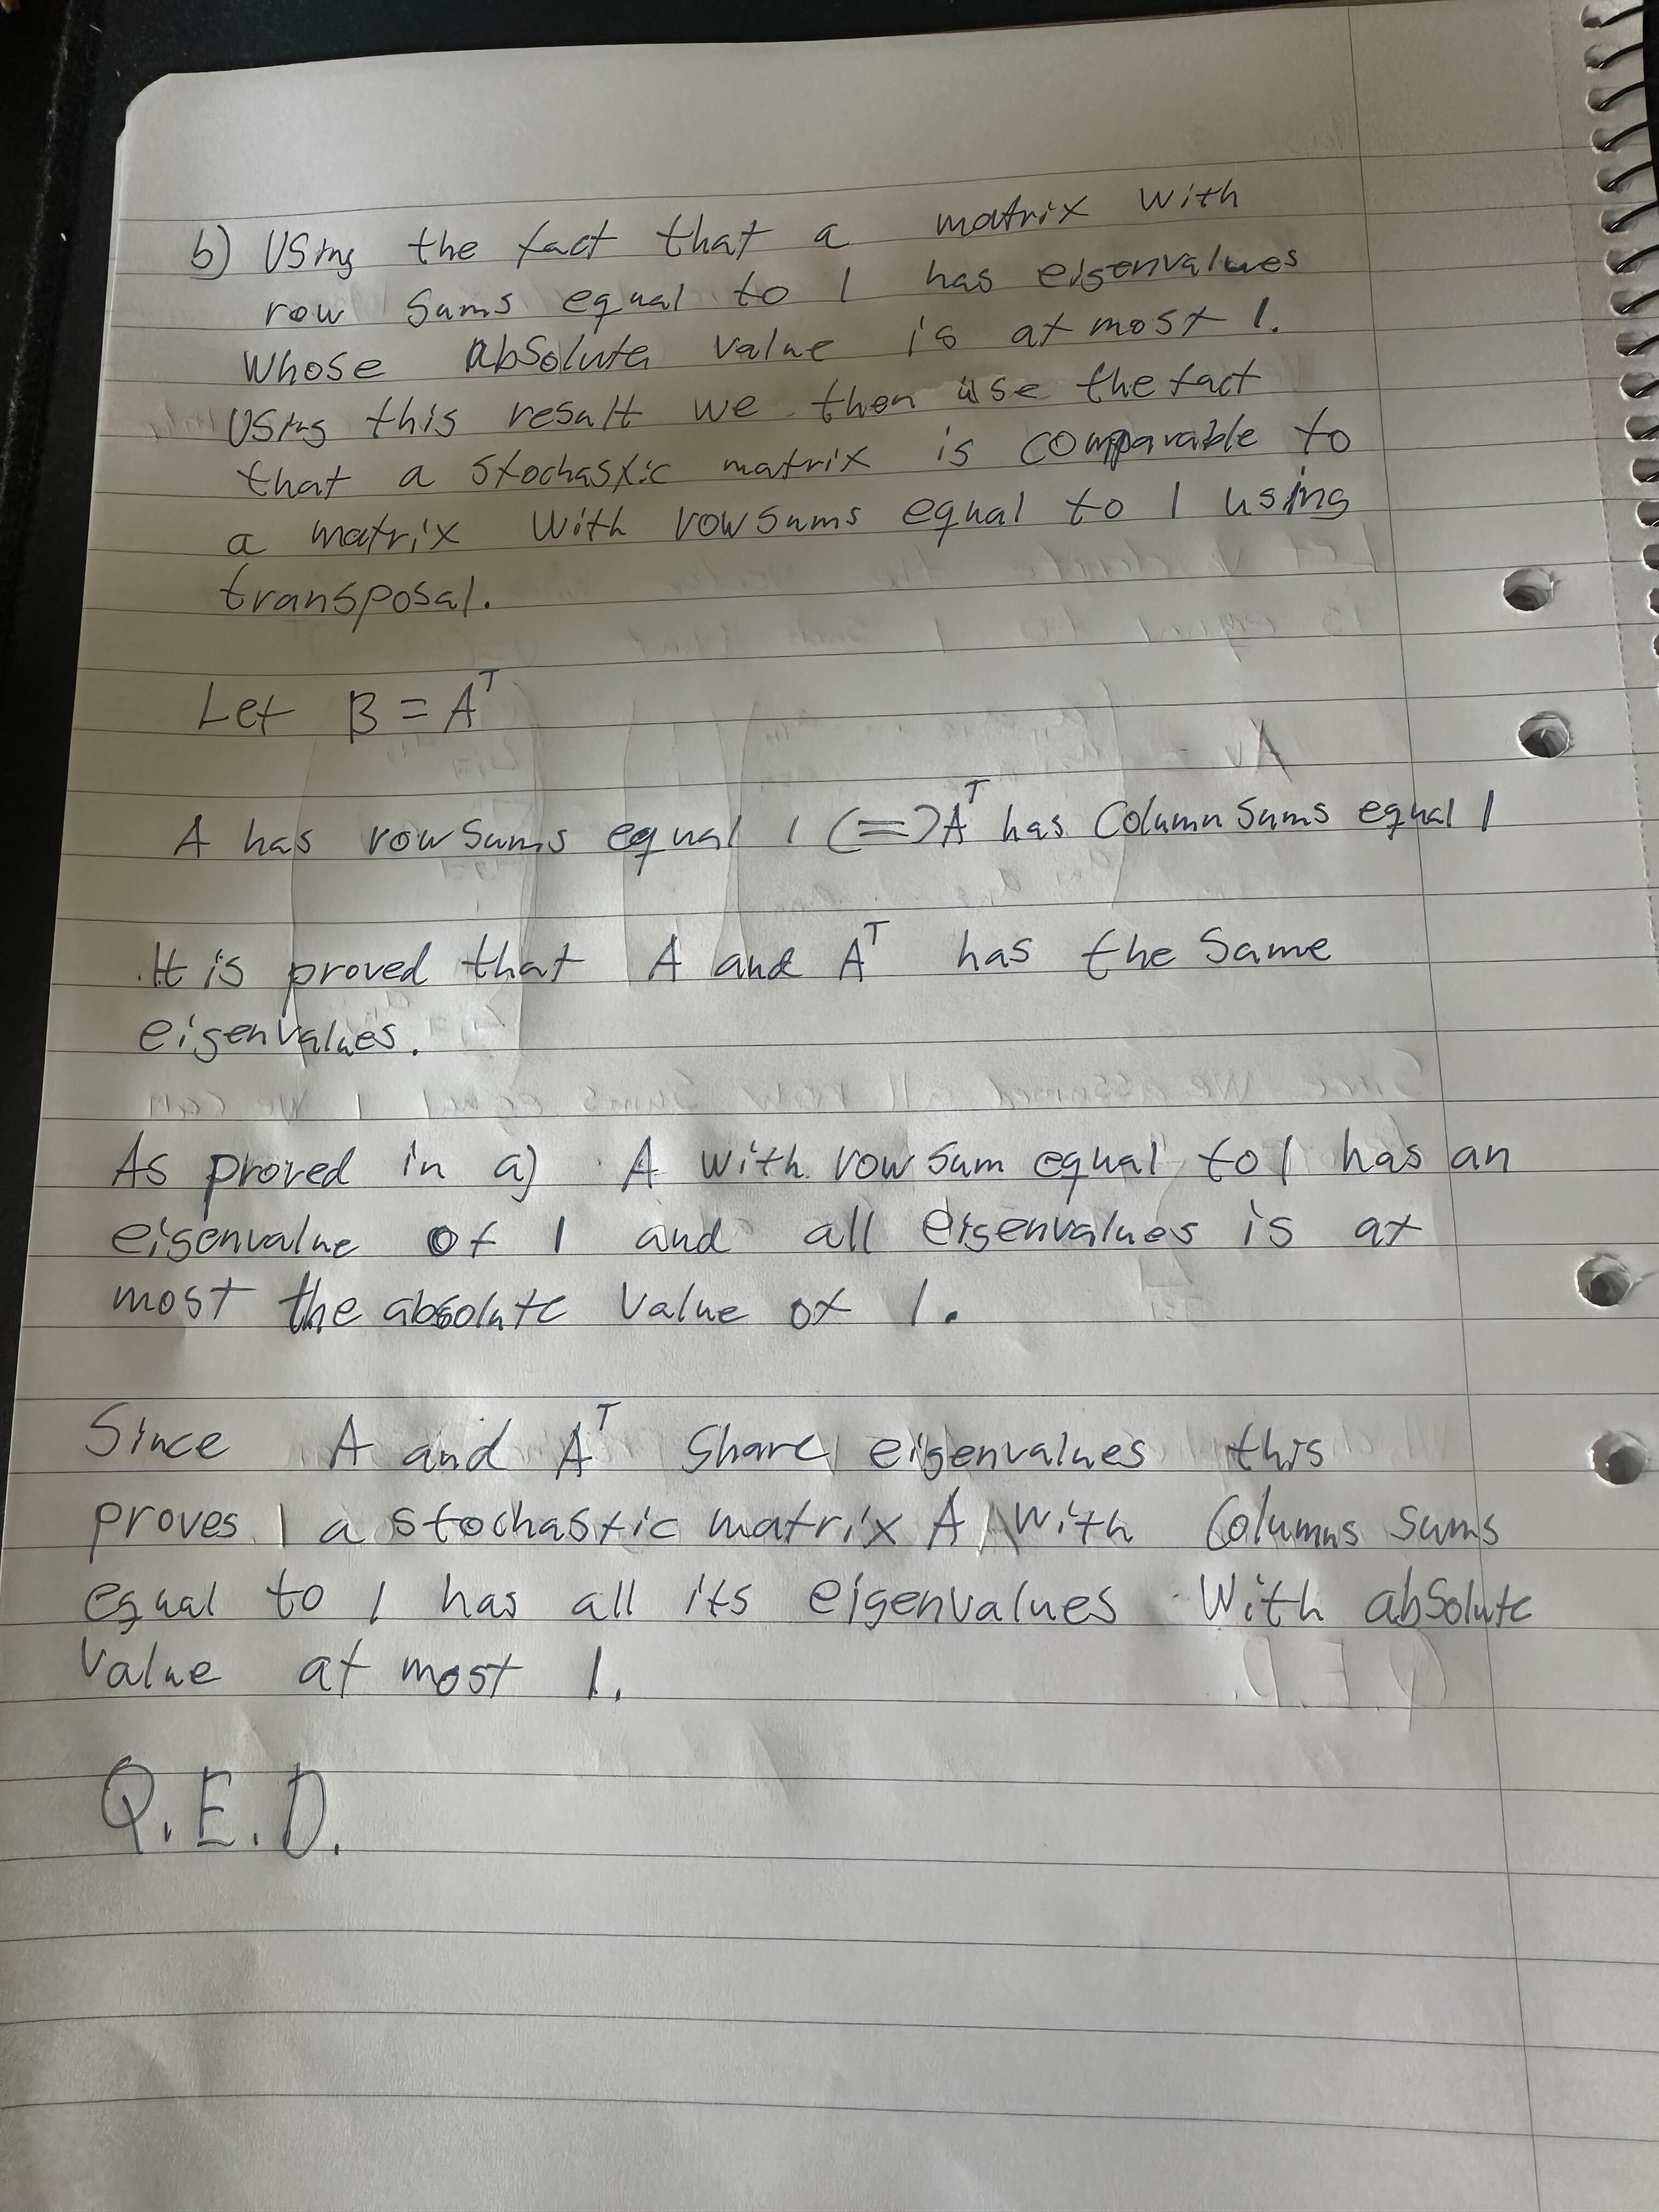 b) Using the fact that a matrix with
row sums equal to 1 has eigenvalues
whose absolute value is at most 1.
Using this result we then use the fact
that a stochastic matrix is comparable to
a matrix with row sums equal to 1 using
transposal.
Let B = Aᵀ
A has row sums equal 1 (=) Aᵀ has column sums equal 1
It is proved that A and Aᵀ has the same
eigenvalues.
As proved in a) A with row sum equal to 1 has an
eigenvalue of 1 and all eigenvalues is at
most the absolute value of 1.
Since A and Aᵀ share eigenvalues this
proves a stochastic matrix A with Columns sums
equal to 1 has all its eigenvalues with absolute
value at most 1.
Q.E.D.